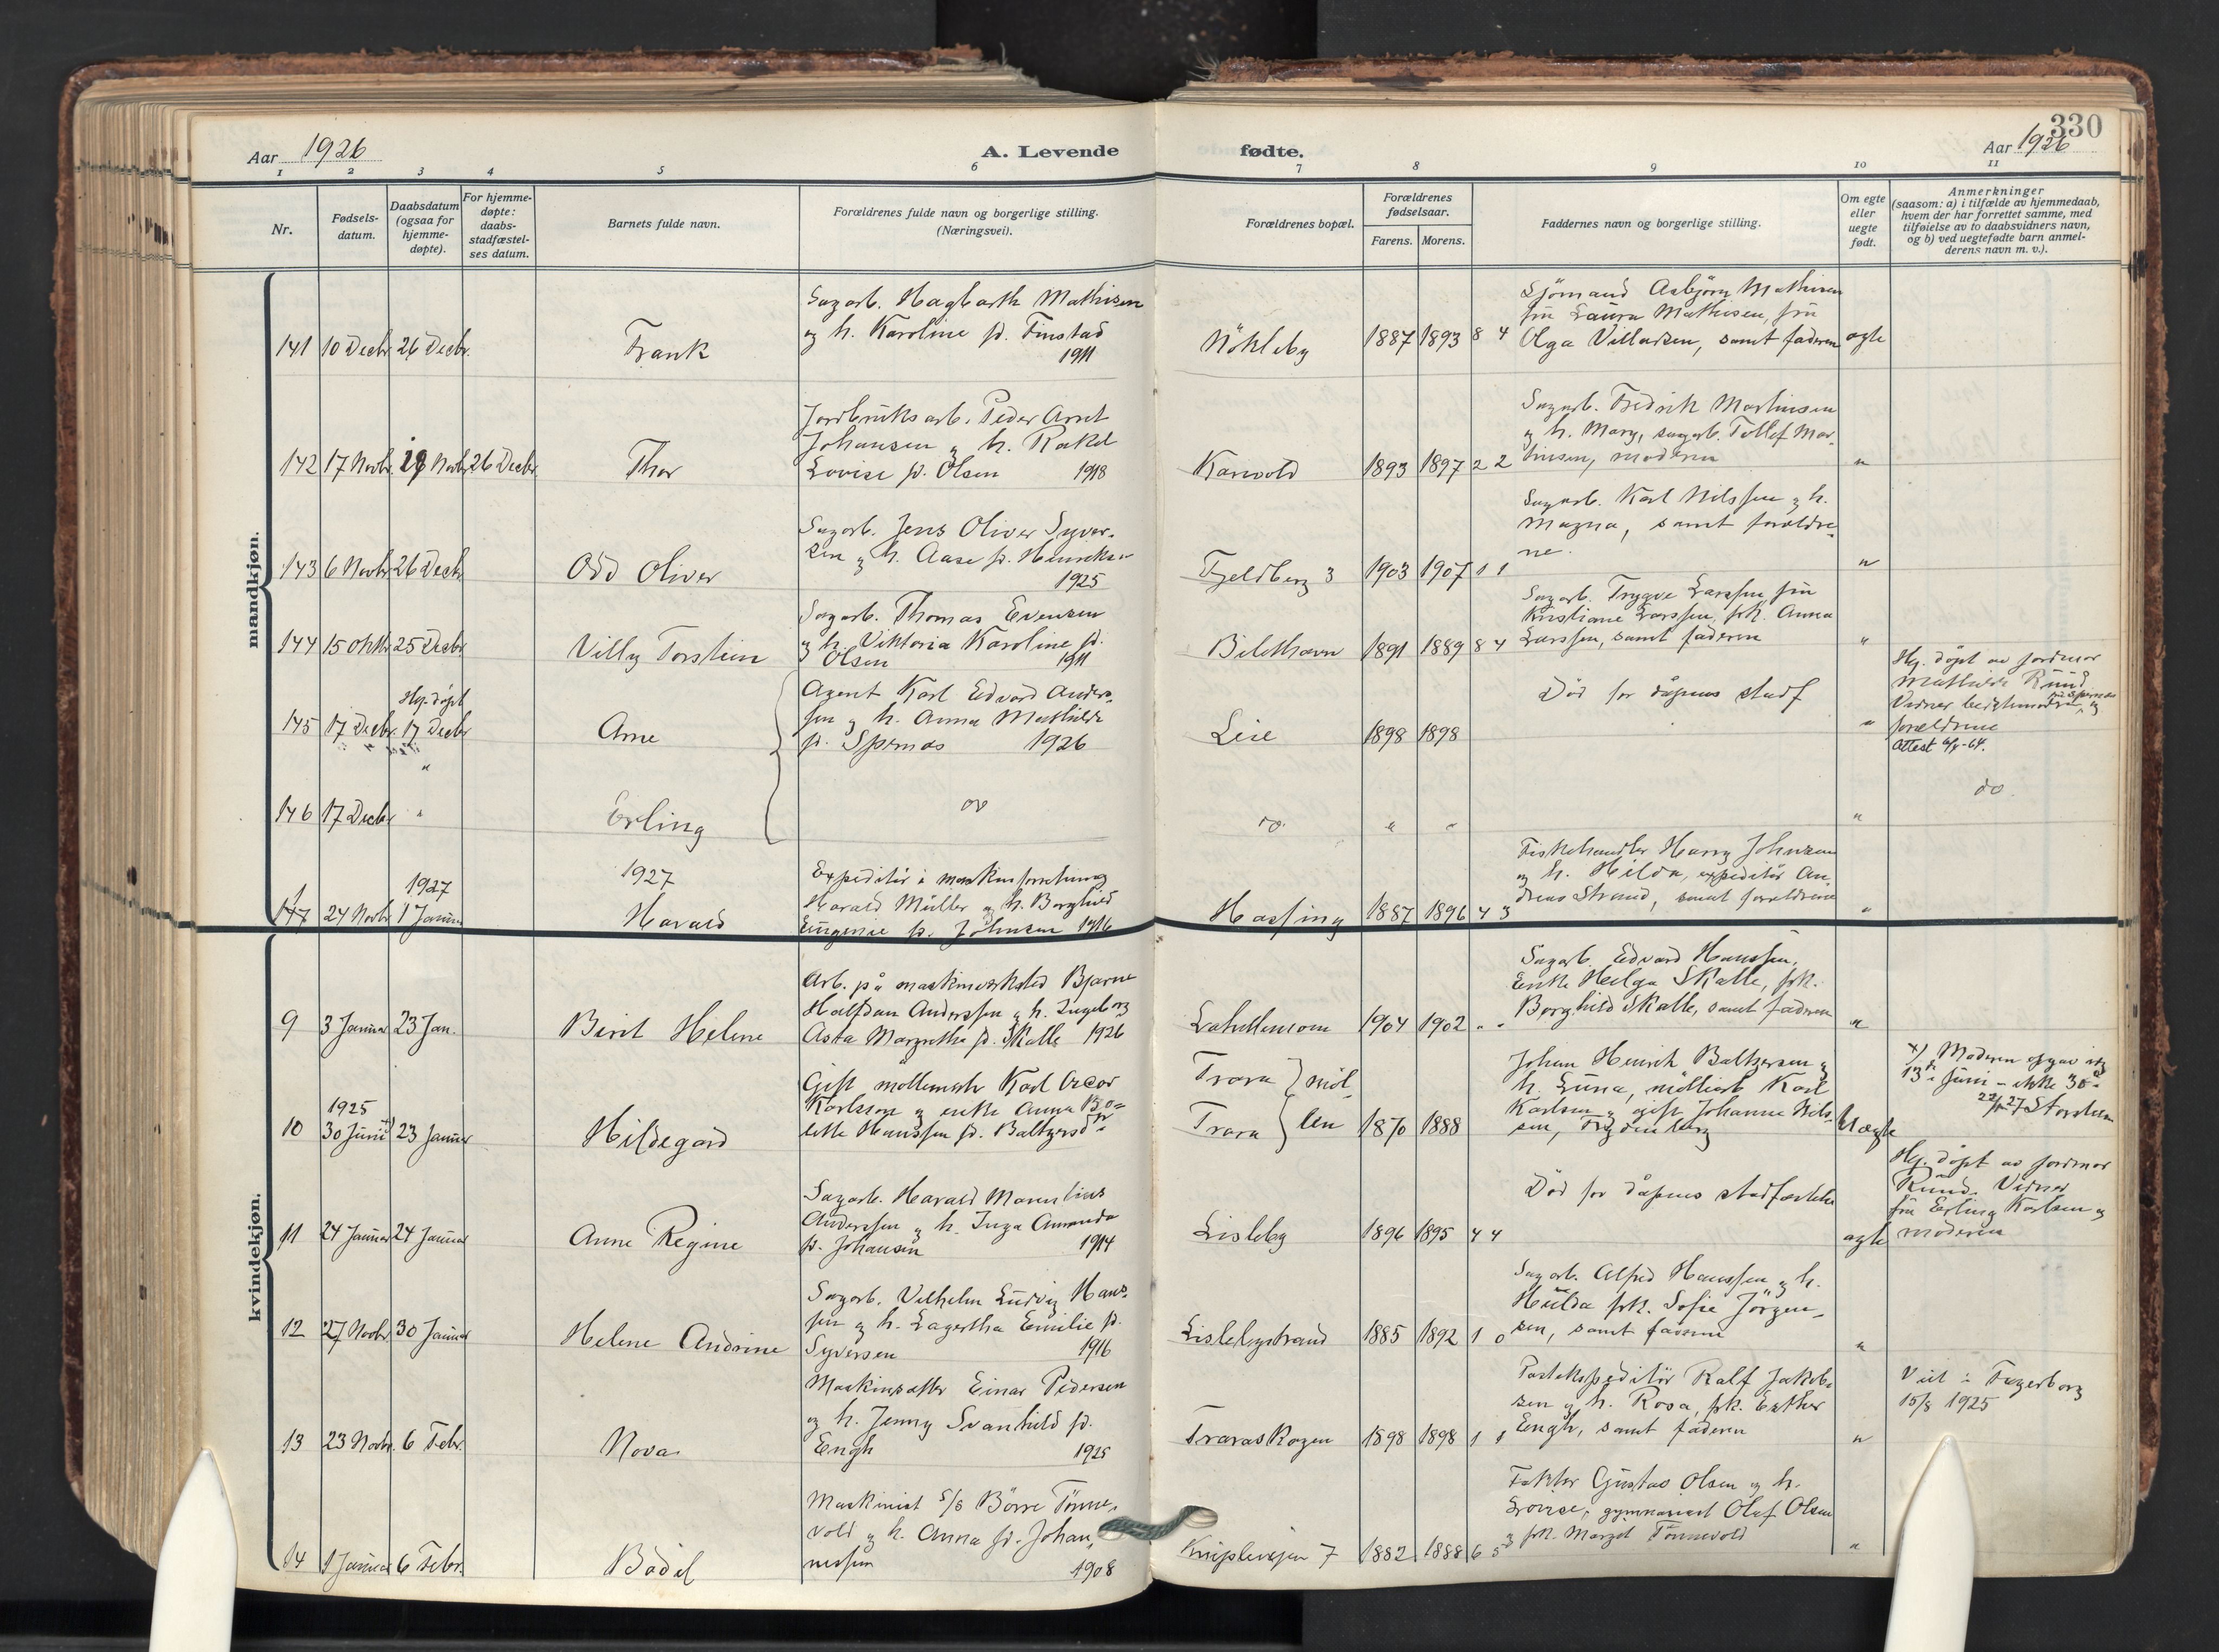 330
Aar 1926
A. Levende
fødte.
Aar 1926
1 2 3 4 5 6 7 8 9 10 11
Nr.
Fødsels-
datum.
Daabsdatum
(ogsaa for
hjemme-
døpte).
For hjemme-
døpte:
daabs-
stadfæstel-
ses datum.
Barnets fulde navn.
Forældrenes fulde navn og borgerlige stilling.
(Næringsvei).
Forældrenes bopæl.
Forældrenes
fødselsaar.
Farens. Morens.
Faddernes navn og borgerlige stilling.
Om egte
eller
uegte
født.
Anmerkninger
(saasom: a) i tilfælde av hjemmedaab,
hvem der har forrettet samme, med
tilføielse av to daabsvidners navn,
og b) ved uegtefødte barn anmel-
derens navn m. v.).
mandkjøn.
141 10 Decbr. 26 Decbr.
Frank
Sagarb. Hagbarth Mathisen
og h. Karoline f. Finstad
1911
Nökleby
1887 1893 8 4
Sjömand Asbjörn Mathisen
frü Laura Mathisen, frü
Olga Villadsen, samt faderen
egte
142 17 Novbr. Novbr. 26 Decbr.
Thor
Jordbrüksarb. Peder Arnt
Johansen og h. Rakel
Lovise f. Olsen 1918
1893 1897 2 2
Sagarb. Fredrik Martinsen
og h. Mary, sagarb. Tollef Mar-
tinsen, moderen
"
143 6 Novbr 26 Decbr
Odd Oliver
Sagarb. Jens Oliver Syver-
sen og h. Aase f. Henriksen
1925
Fjeldberg 3
1903 1907 1 1
Sagarb. Karl Nilssen og h.
Magna, samt foreldre-
ne.
"
144 15 Oktbr 25 Decbr
Villy Torstein
Sagarb. Thomas Evensen
og h. Viktoria Karoline f.
Olsen 1911
1891 1889 8 4
Sagarb. Trygve Larssen, frü
Kristiane Larssen, frk. Anna
Larssen, samt faderen
"
145 17 Decbr. Hj. döpt 17 Decbr
Arne
Agent Karl Edvard Anders-
sen og h. Anna Mathilde
f. Spernæs 1926
Leie
1898 1898
Död for dåpens stadf
"
Hj. döpt av jordmor
Mathilde Ründ
foreldrene
Attest
146 17 Decbr "
Erling
do
do.
" "
"
do.
147 24 Novbr 1927 1 Januar
1927
Harald
Expeditör i maskinforretning
Harald Müller og h. Borghild
Eugenie f. Johnsen 1916
Hassing
1887 1896 4 3
Fiskehandler Harry Johnsen
og h. Hilda, expeditör An-
dreas Strand, samt foreldrene
"
kvindekjøn.
9 3 Januar 23 Jan.
Berit Helene
Arb. på maskinverksted Bjarne
Halfdan Anderssen og h. Ingeborg
Asta Margrethe f. Skalle 1926
1904 1902 " "
Sagarb. Edvard Hanssen,
Enke Helga Skalle, frk.
Borghild Skalle, samt faderen
"
10 1925 30 Jüni 23 Januar
Hildegard
Gift möllemester Karl Oscar
Karlsson og enke Anna Bo-
lette Hanssen f. Baltzersd.
Trara
Trara } möl-
len
1870 1888
Johan Henrik Baltzersen og
h. Lüna, möllearb. Karl
Karlsen og gift Johanne Nils-
sen, Trydenberg
Uegte
x) Moderen opgav
13de Jüni - ikke 30.
11 24 Januar 24 Januar
Anne Regine
Sagarb. Harald Marentius
Anderssen og h. Inga Amanda
f. Johansen 1914
Lisleby
1896 1895 4 4
Död for dåpens stadfestelse
egte
Hj. döpt av jordmor
Ründ. Vidner
frü Erling Karlsen og
moderen
12 27 Novbr 30 Januar
Helene Andrine
Sagarb. Vilhelm Lüdvig Hans-
sen og h. Lagertha Emilie f.
Syversen 1916
Lislebystrand
1885 1892 1 0
Sagarb. Alfred Hanssen og h.
Hülda frk. Sofie Jörgen-
sen, samt faderen
"
13 23 Novbr. 6 Febr.
Nova
Einar Pedersen
og h. Jenny Svanhild f.
Engh 1925
Traraskogen
1898 1898 1 1
Postekspeditör Ralf Jakob-
sen og h. Rosa, frk. Esther
Engh, samt faderen
"
Viet i Fagerborg
15/8 1925
14 1 Januar 6 Febr.
Bodil
Maskinist S/S Börre Tönne-
vold og h. Anna f. Johan-
nessen 1908
Kniplevejen 7
1882 1888 6 5
Faktor Gustav Olsen og h.
Lovise, gymnasiast Olaf Olsen
og frk. Margit Tönnevold
"